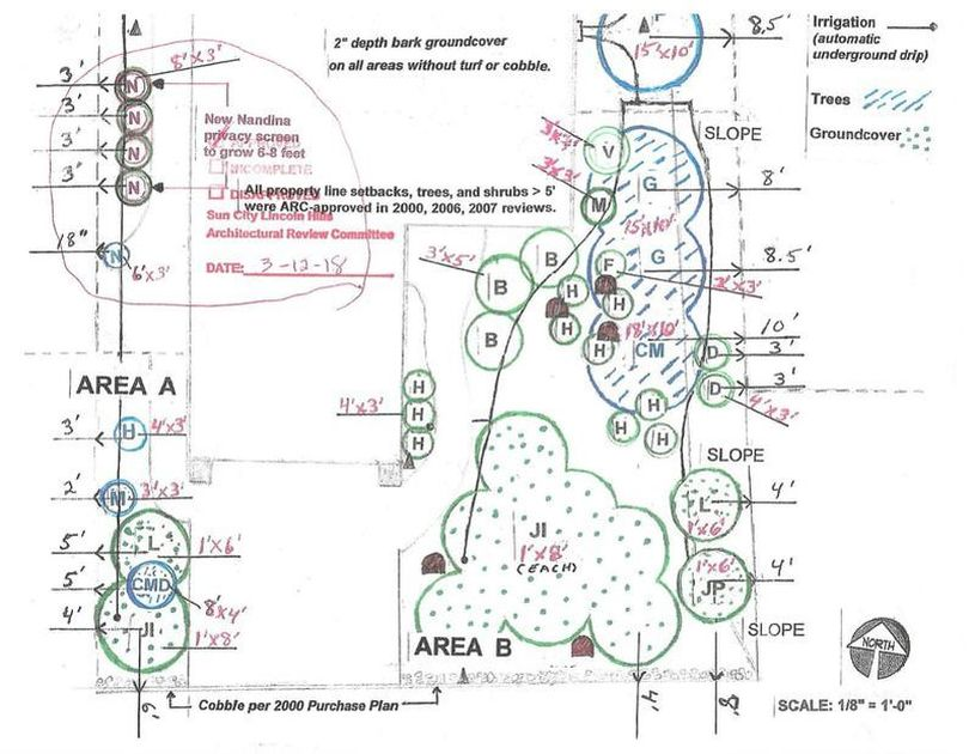 8.5'
15'x10'
Irrigation
(automatic
underground drip)
Trees
Groundcover
2" depth bark groundcover
on all areas without turf or cobble.
8'x3'
3'
N
3'
N
3'
N
3'
N
18"
N
6'x3'
New Nandina
privacy screen
to grow 6-8 feet
INCOMPLETE
DISAPPROVED
All property line setbacks, trees, and shrubs > 5'
were ARC-approved in 2000, 2006, 2007 reviews.
Sun City Lincoln Hills
Architectural Review Committee
DATE: 3-12-18
SLOPE
V
3'x3'
M
G
8'
15'x10'
G
8.5'
F
3'x3'
3'x5'
B
B
B
H
H
H
H
18'x10'
CM
10'
D
3'
D
3'
4'x3'
H
H
H
AREA A
4'x3'
H
H
H
3'
H
4'x3'
2'
M
3'x3'
5'
L
1'x6'
5'
CMD
8'x4'
4'
JI
1'x8'
6'
SLOPE
L
4'
1'x6'
1'x6'
JP
4'
SLOPE
JI
1'x8'
(EACH)
AREA B
4'
8'
Cobble per 2000 Purchase Plan
NORTH
SCALE: 1/8" = 1'-0"